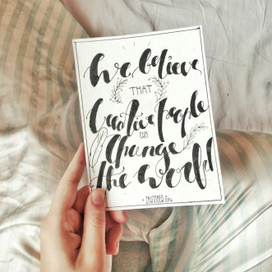 We believe
THAT
Creative people
can
Change
the world